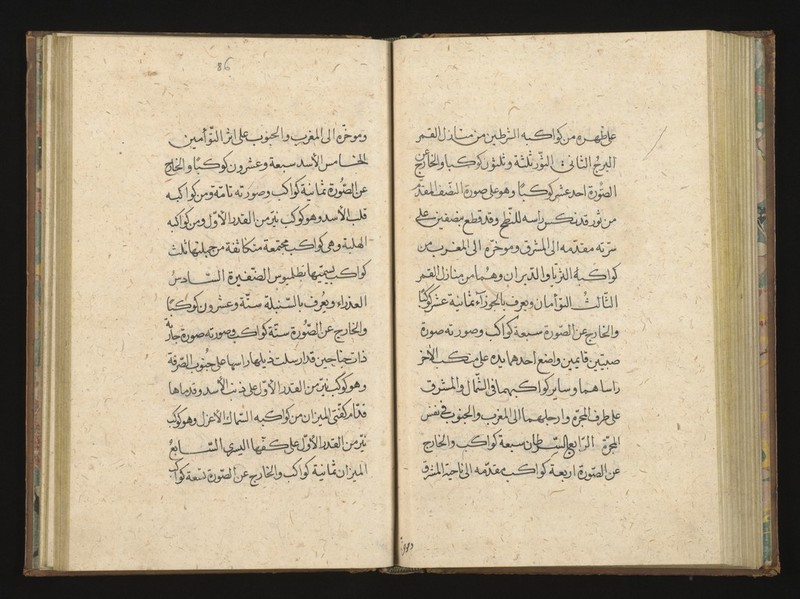 على ظهره من كواكبه الشرطين من منازل القمر
البرج الثاني الثور ثلثة وثلثون كوكبا والخارج عن
الصورة احد عشر كوكبا وهو على صورة النصف المقدم
من ثور قد نكس راسه للنطح وقد قطع بنصفين على
سرته مقدمه الى المشرق وموخره الى المغرب من
كواكبه الثريا والدبران وهما من منازل القمر
الثالث التوأمان ويعرف بالجوزاء ثمانية عشر كوكبا
والخارج عن الصورة سبعة كواكب وصورته صورة
صبيين قايمين واضع احدهما يده على منكب الاخر
راساهما وساير كواكبهما في الشمال والمشرق
على طرف المجرة وارجلهما الى المغرب والجنوب في نفس
المجرة الرابع السرطان سبعة كواكب والخارج
عن الصورة اربعة كواكب مقدمه الى ناحية المشرق
86
وموخره الى المغرب والجنوب على اثر التوأمين
الخامس الأسد سبعة وعشرون كوكبا والخارج
عن الصورة ثمانية كواكب وصورته تامة ومن كواكبه
قلب الأسد وهو كوكب نير من القدر الأول ومن كواكبه
الهلبة وهي كواكب مجتمعة متكاثفة من جملتها ثلث
كواكب يسميها بطلميوس الضفيرة السادس
العذراء ويعرف بالسنبلة ستة وعشرون كوكبا
والخارج عن الصورة ستة كواكب وصورته صورة جارية
ذات جناحين قد ارسلت ذيلها راسها على جنوب الصرفة
وهو كوكب نير من القدر الأول على ذنب الأسد وقدماها
قدام كفتي الميزان من كواكبه السماك الأعزل وهو كوكب
نير من القدر الأول على كفها اليسرى السابع
الميزان ثمانية كواكب والخارج عن الصورة تسعة كواكب